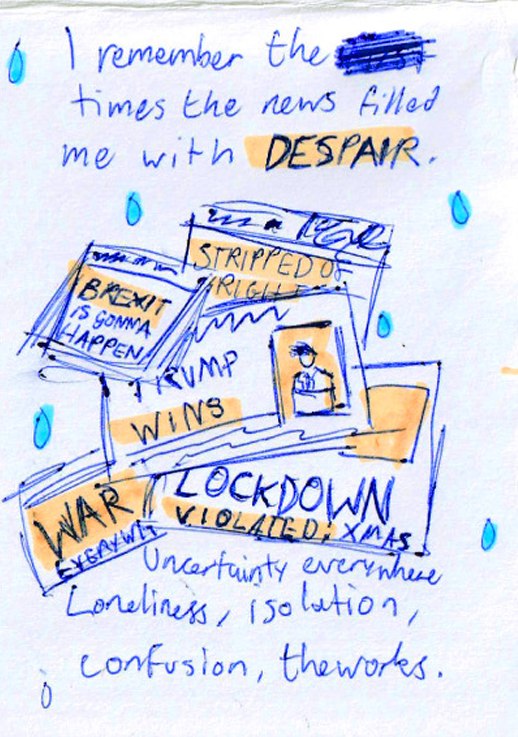 I remember the
times the news filled
me with DESPAIR.
STRIPPED OF
RIGHT
BREXIT
IS GONNA
HAPPEN
TRUMP
WINS
LOCKDOWN
VIOLATED; XMAS
WAR
Uncertainty everywhere
Loneliness, isolation,
confusion, theworks.